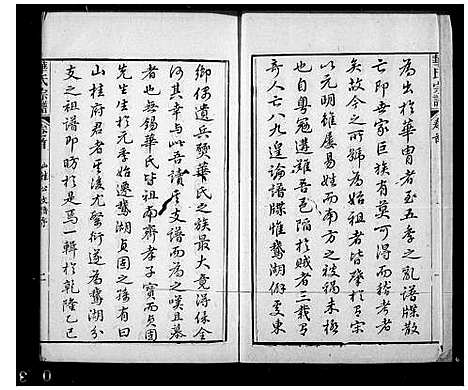 華氏宗譜
卷首
為出於華冑者至五季之亂譜牒散
亡即吾家巨族有莫可得而稽考者
矣故今之所號為始祖者皆肇於有宗
以元明雖屢易姓而南方之被禍未極
自粵冠遘難吾邑陷於賊者三載有
奇人亡八九遑論譜牒惟鵞湖僻處東
鄉傷遺兵燹華氏之族最大竟得保全
何其幸与此吾讀其支譜而為之嘆且慕
者也无錫華氏皆祖南齋孝子寶而貞固
先生生於元季始遷鵞湖貞固之孫有曰
山桂府君者其後尤繁衍遂為鵞湖分
支之祖譜即昉於是焉一輯於乾隆乙巳
華氏宗譜
卷首
山桂公支譜序
一
0 3